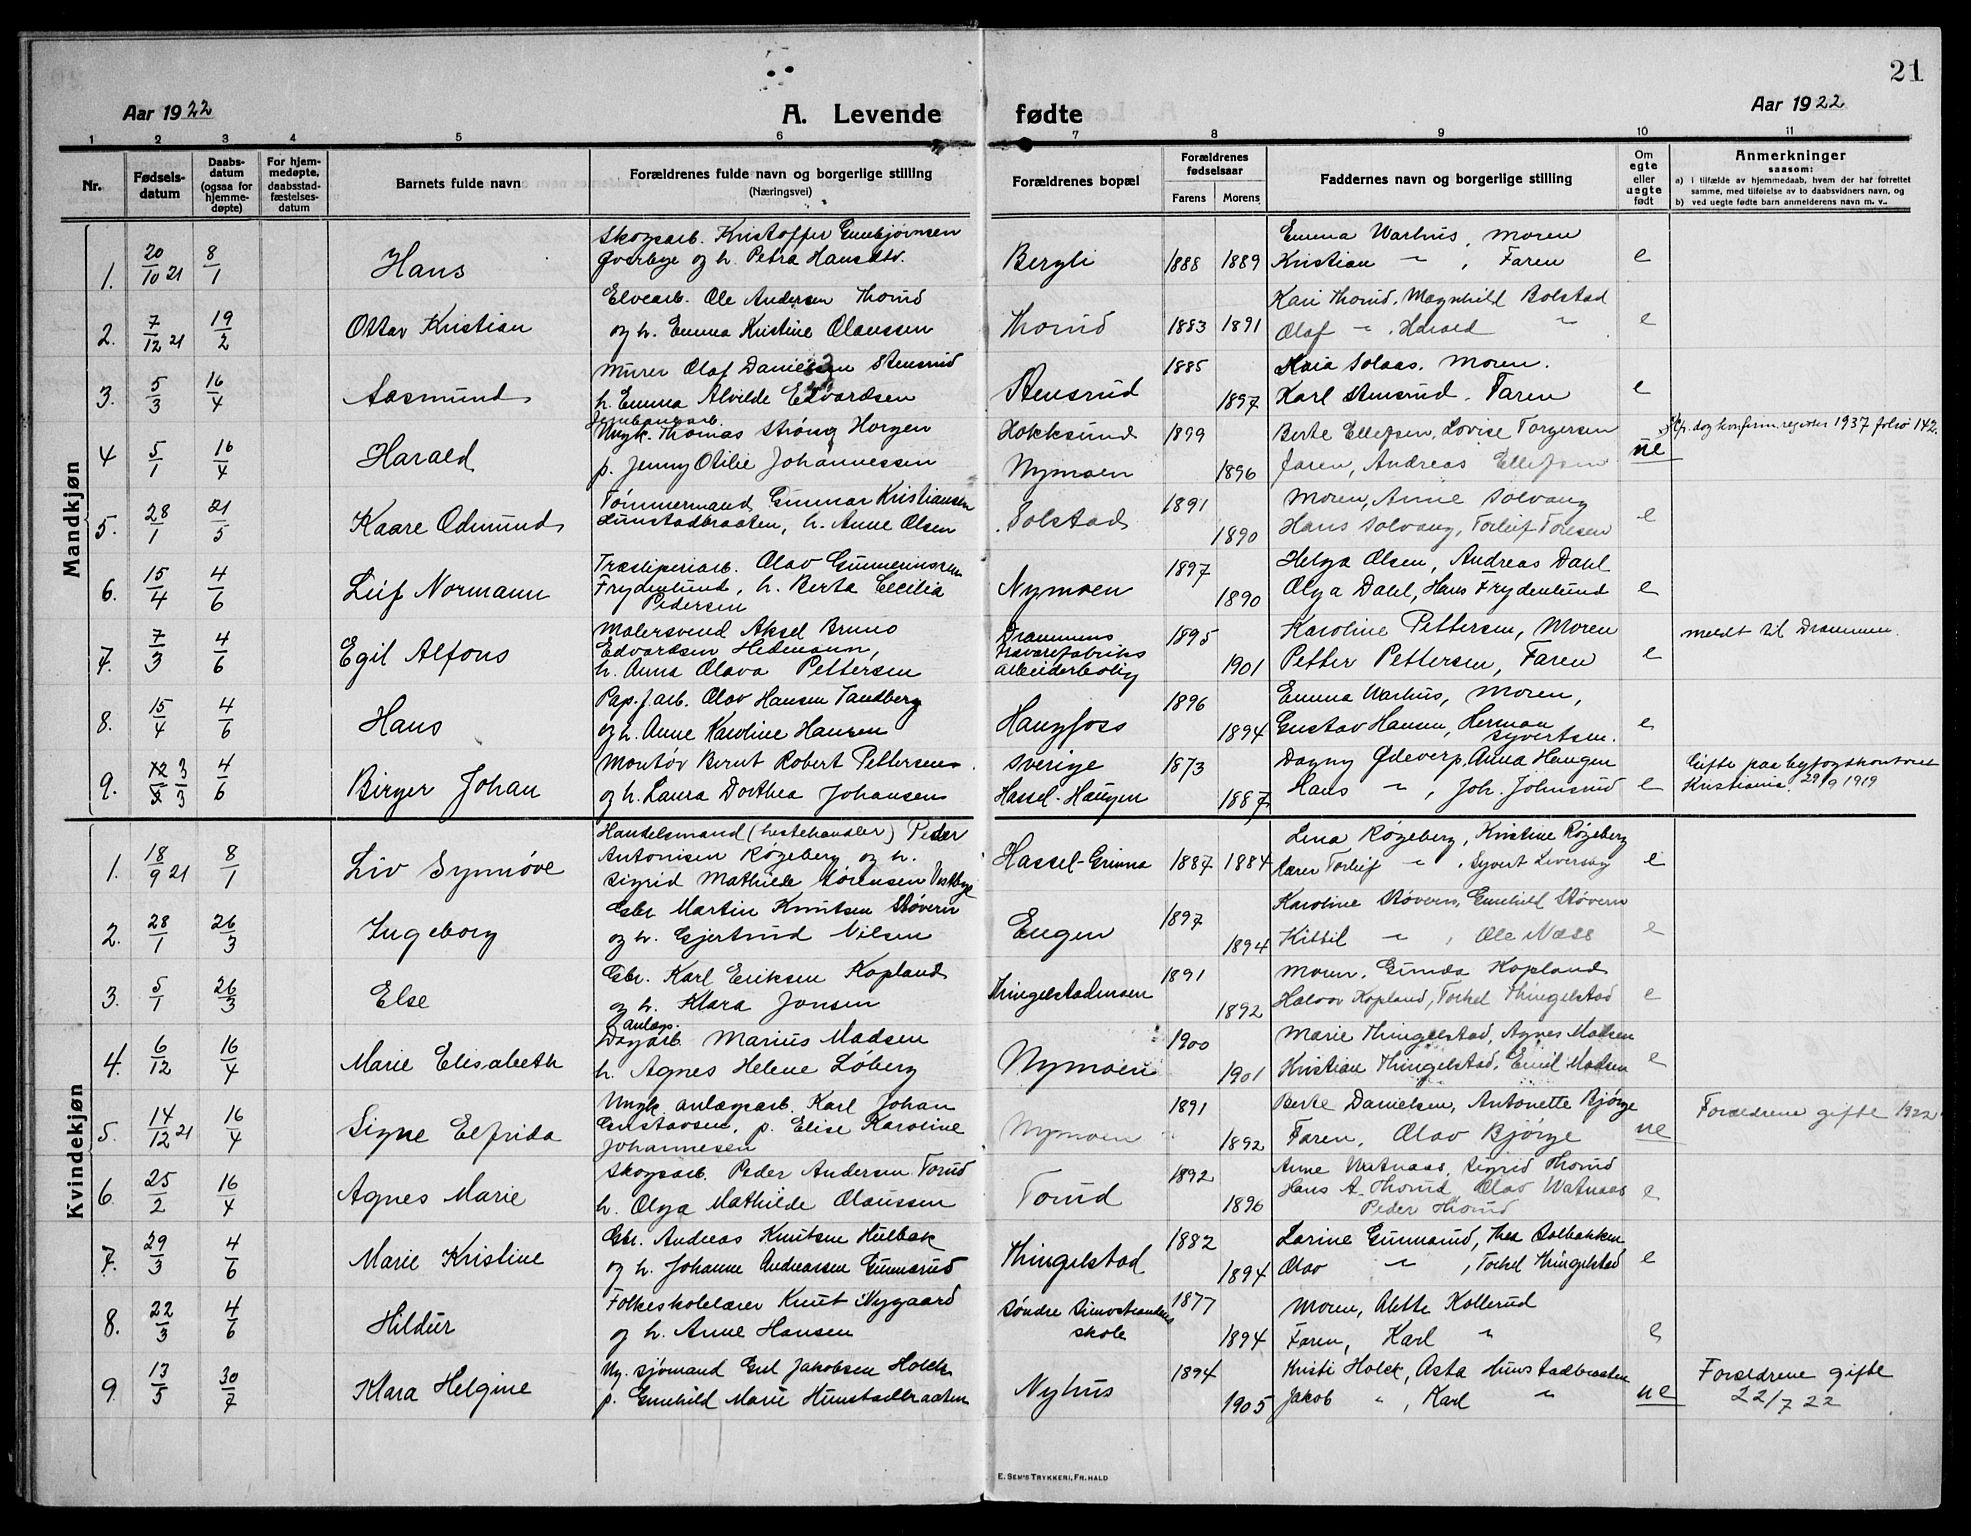 21
Aar 1922 A. Levende fødte Aar 1922
1 2 3 4 5 6 7 8 9 10 11
Nr. Fødsels-datum Daabs-datum (ogsaa for hjemme-døpte) For hjem-medøpte, daabsstad-fæstelses-datum Barnets fulde navn Forældrenes fulde navn og borgerlige stilling (Næringsvei) Forældrenes bopæl Forældrenes fødselsaar Farens Morens Faddernes navn og borgerlige stilling Om egte eller uegte født Anmerkninger saasom: a) i tilfælde av hjemmedaab, hvem der har forrettet samme, med tilføielse av to daabsvidners navn, og b) ved uegte fødte barn anmelderens navn m. v..
Mandkjøn
1. 20/10 21 8/1 Hans Skogsarb. Kristoffer Gunbjørnsen Bergli 1888 1889 Emma Warhus, Moren e
Øverbye og h. Petra Hansdtr. Kristian " , Faren
2. 7/12 21 19/2 Ottar Kristian Elvearb. Ole Andersen Thorud Thorud 1883 1891 Kari Thorud, Magnhild Bolstad e
og h. Emma Kristine Olaussen Olaf " , Harald "
3. 5/3 16/4 Aasmund Murer Olaf Danielsen Stensrud Stensrud 1885 1897 Kaia Solaas, Moren. e
h. Emma Alvilde Edvardsen Karl Stensrud, Faren
4 5/1 16/4 Harald Jernbanearb.
Ungk. Thomas Strøng Horgen Hokksund 1899 Berte Ellefsen, Lovise Torgersen ue Cfr. dog konfirm.register 1937 folio 142.
p. Jenny Otilie Johannessen Nymoen 1896 Faren, Andreas Ellefsen
5. 28/1 21/5 Kaare Odmund Tømmermand Gunnar Kristiansen Solstad 1891 1890 Moren, Anne Solvang e
Hunstadbraaten, h. Anne Olsen Hans Solvang, Torleif Toresen
6. 15/4 4/6 Leif Normann Træsliperiarb. Olav Gunneriussen Nymoen 1897 1890 Helga Olsen, Andreas Dahl e
Frydenlund, h. Berta Cecilia Olga Dahl, Hans Frydenlund
Pedersen
7. 7/3 4/6 Egil Alfons Malersvend Aksel Bruno Drammens 1895 1901 Karoline Pettersen, Moren e meldt til Drammen.
Edvardsen Hedmann, trævarefabriks Petter Pettersen, Faren
h. Anna Olava Pettersen arbeiderbolig
8. 15/4 4/6 Hans Pap.f.arb. Olav Hansen Tandberg Haugfoss 1896 1894 Emma Warhus, Moren, e
og h. Anne Karoline Hansen Gustav Hansen, Herman
Syvertsen.
9. 3/3 4/6 Birger Johan Montør Bernt Robert Pettersen Sverige 1873 1887 Dagny Ødeverp, Anna Haugen e Gifte paa byfogdkontoret
og h. Laura Dorthea Johansen Hassel-Haugen Hans " , Joh. Johnsrud Kristiania 29/9 1919
Kvindekjøn
1. 18/9 21 8/1 Liv Synnøve Handelsmand (hestehandler) Peder Hassel-Grinna 1887 1884 Lina Røgeberg, Kristine Røgeberg e
Antonisen Røgeberg og h. lærer Torleif " , Syvert Liversby
Sigrid Mathilde Sørensen Vestbye
2. 28/1 26/3 Ingeborg Gbr Martin Knutsen Støvern Eugen 1897 1894 Karoline Støvern, Gunhild Støvern e
og h. Gjertrud Nilsen Kittil " , Ole Næss
3. 5/1 26/3 Else Gbr. Karl Eriksen Kopland Thingelstadmoen 1891 1892 Moren, Gunda Kopland e
og h. Klara Jonsen Halvor Kopland, Torkel Thingelstad
4. 6/12 16/4 Marie Elisabeth anlægs.
Dagarb. Marius Madsen Nymoen 1900 1901 Marie Thingelstad, Agnes Madsen e
h. Agnes Helene Løberg Kristian Thingelstad, Emil Madsen
5. 14/12 21 16/4 Signe Elfrida Ungk. anlægsarb. Karl Johan Nymoen " 1891 1892 Berte Danielsen, Antonette Bjørge ue Forældrene gifte 1922
Gustavsen, p. Elise Karoline Faren, Olav Bjørge
Johannesen
6. 25/2 16/4 Agnes Marie Skogsarb. Peder Andersen Torud Torud 1892 1896 Anne Watnaas, Sigrid Thorud e
h. Olga Mathilde Olaussen Hans A. Thorud, Olav Watnaas
Peder Thorud
7. 29/3 4/6 Marie Kristine Gbr. Andreas Knutsen Hulbak Thingelstad 1882 1894 Larine Gunnarud, Thea Solbakken e
og h. Johanne Andreassen Gunnarud Olav " , Torkel Thingelstad
8. 22/3 4/6 Hildur Folkeskolelærer Knut Nygaard Søndre Simostrandens 1877 1894 Moren, Alette Kollerud e
og h. Anne Hansen skole Faren, Karl "
9. 13/5 30/7 Klara Helgine Ug. sjømand Gul Jakobsen Holck Nyhus 1894 1905 Kristi Holck, Asta Hunstadbraaten ue Forældrene gifte
p. Gunhild Marie Hunstadbraaten Jakob " , Karl " 22/7 22
E. SEM'S TRYKKERI, FR.HALD